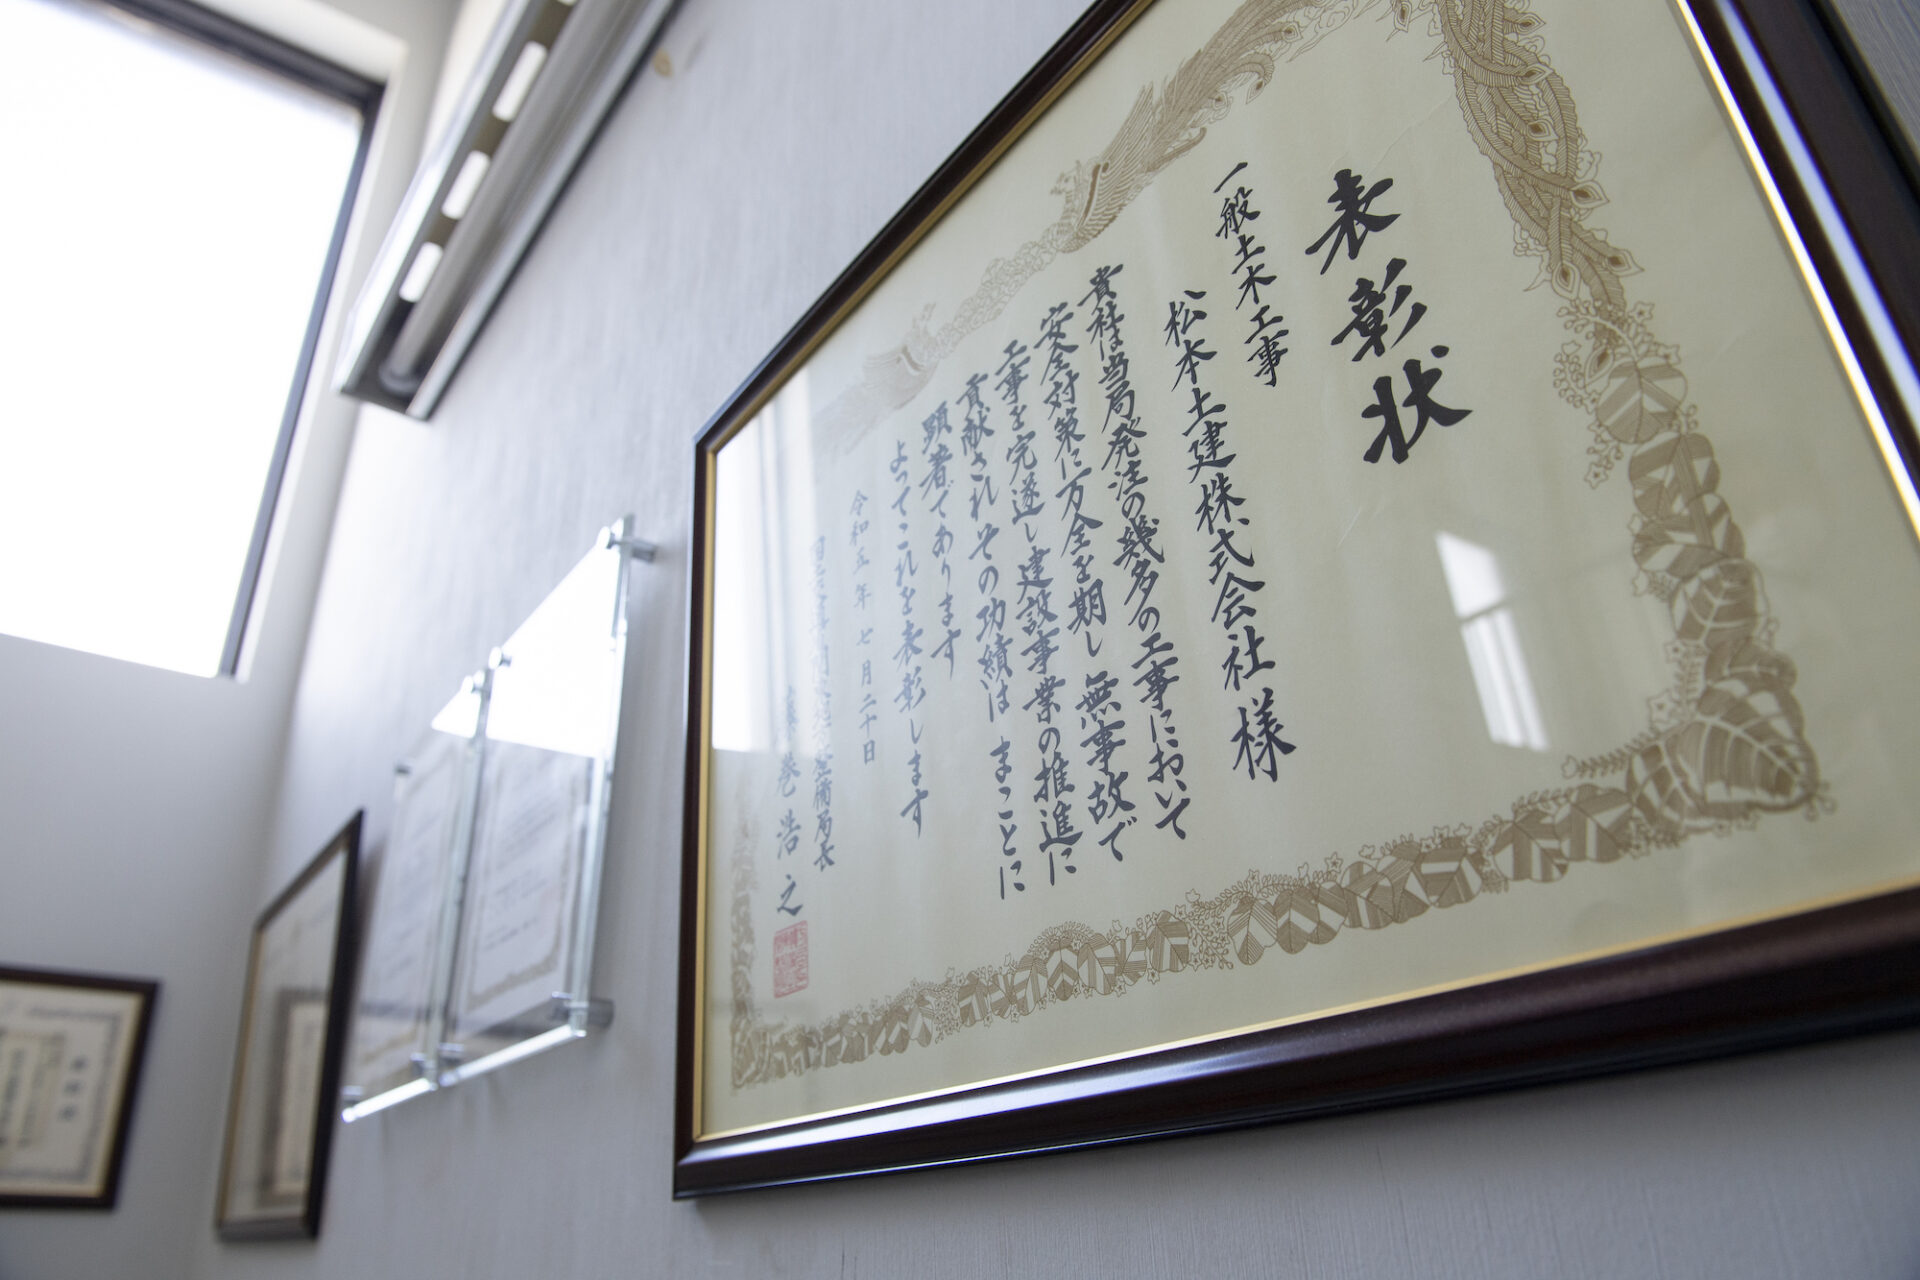 表彰状
一般土木工事
松本土建株式会社様
貴社は当局発注の幾多の工事において
安全対策に万全を期し 無事故で
工事を完遂し建設事業の推進に
貢献されその功績は まことに
顕著であります
よってこれを表彰します
令和五年七月二十日
整備局長
藤巻浩之